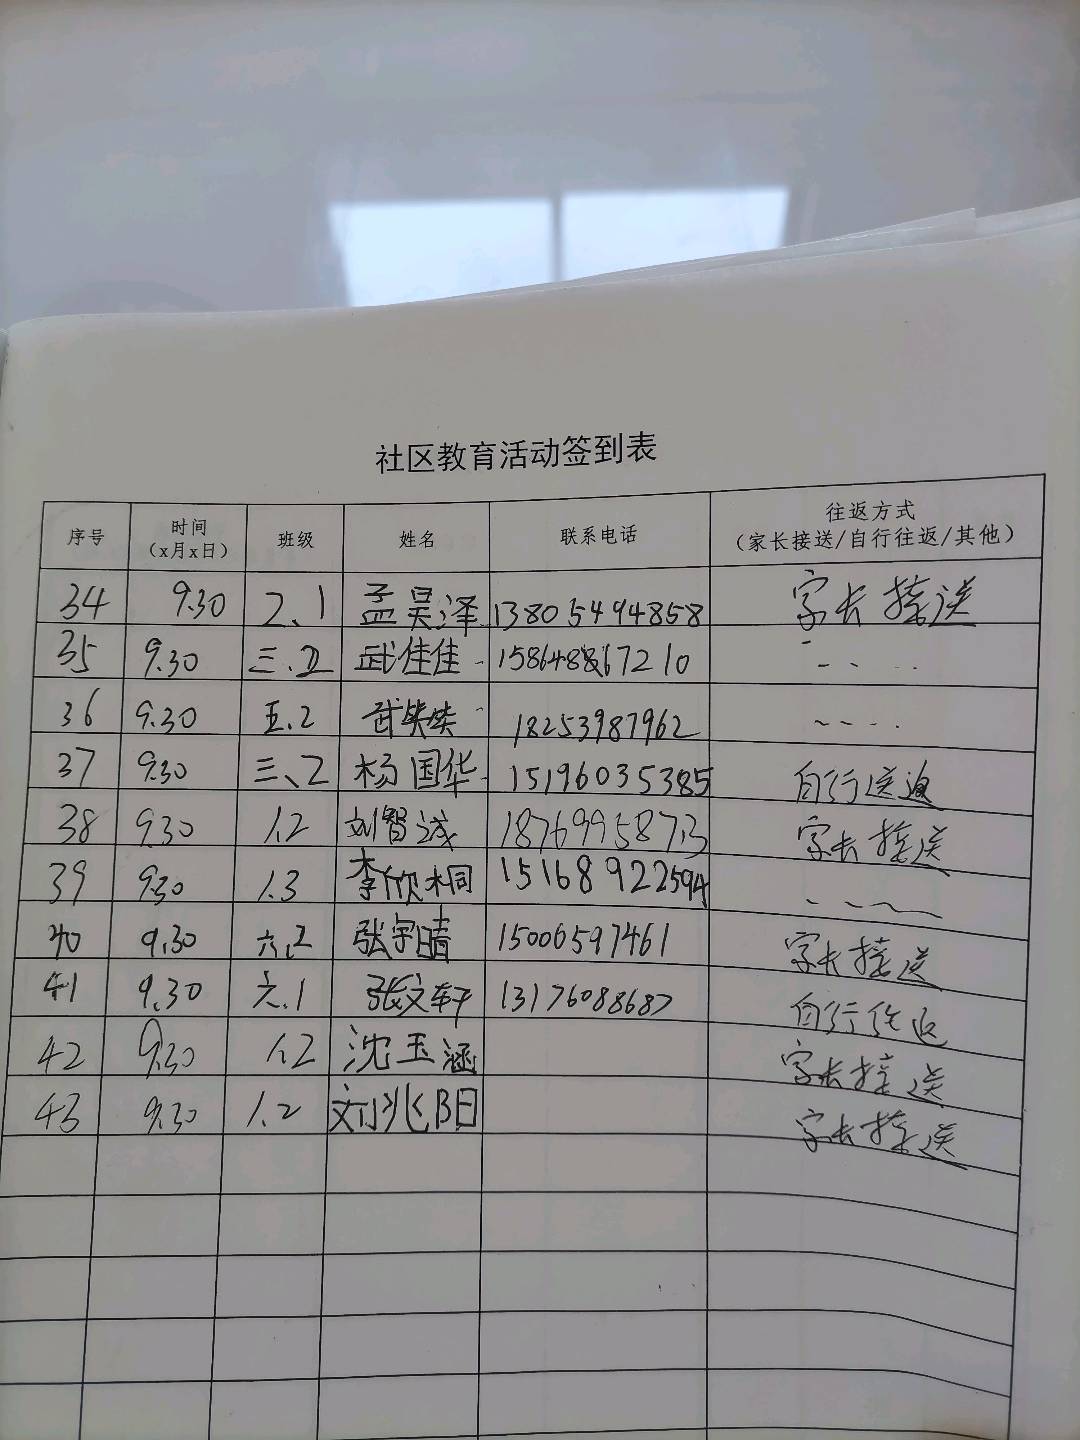 社区教育活动签到表
序号 时间 班级 姓名 联系电话 往返方式
（x月x日） （家长接送/自行往返/其他）
34 9.30 2、1 孟昊泽 13805494858 字长接送
35 9.30 三.2 武佳佳
36 9.30 五.2 18253987962
37 9.30 三、2 杨国华 15196035385 自行
38 9.30 1.2 刘智诚 字长接送
39 9.30 1.3 李欣桐 15168922594
40 9.30 六.2 张宇晴 15006597461 字长接送
41 9.30 六.1 张文轩 13176088687 自行往返
42 9.30 1.2 沈玉涵 字长接送
43 9.30 1.2 刘兆阳 字长接送